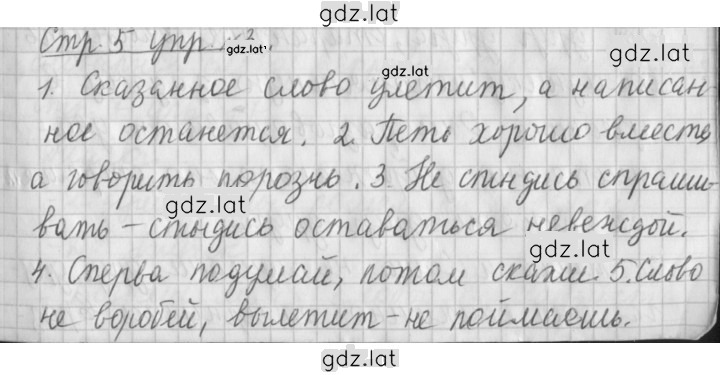 gdz.lat
Стр. 5 упр. 2
gdz.lat
gdz.lat
gdz.lat
1. Сказанное слово улетит, а написан-
ное останется. 2. Петь хорошо вместе,
а говорить порознь. 3. Не стыдись спраши-
gdz.lat
вать - стыдись оставаться невеждой.
gdz.lat
4. Сперва подумай, потом скажи. 5. Слово
не воробей, вылетит - не поймаешь.
gdz.lat